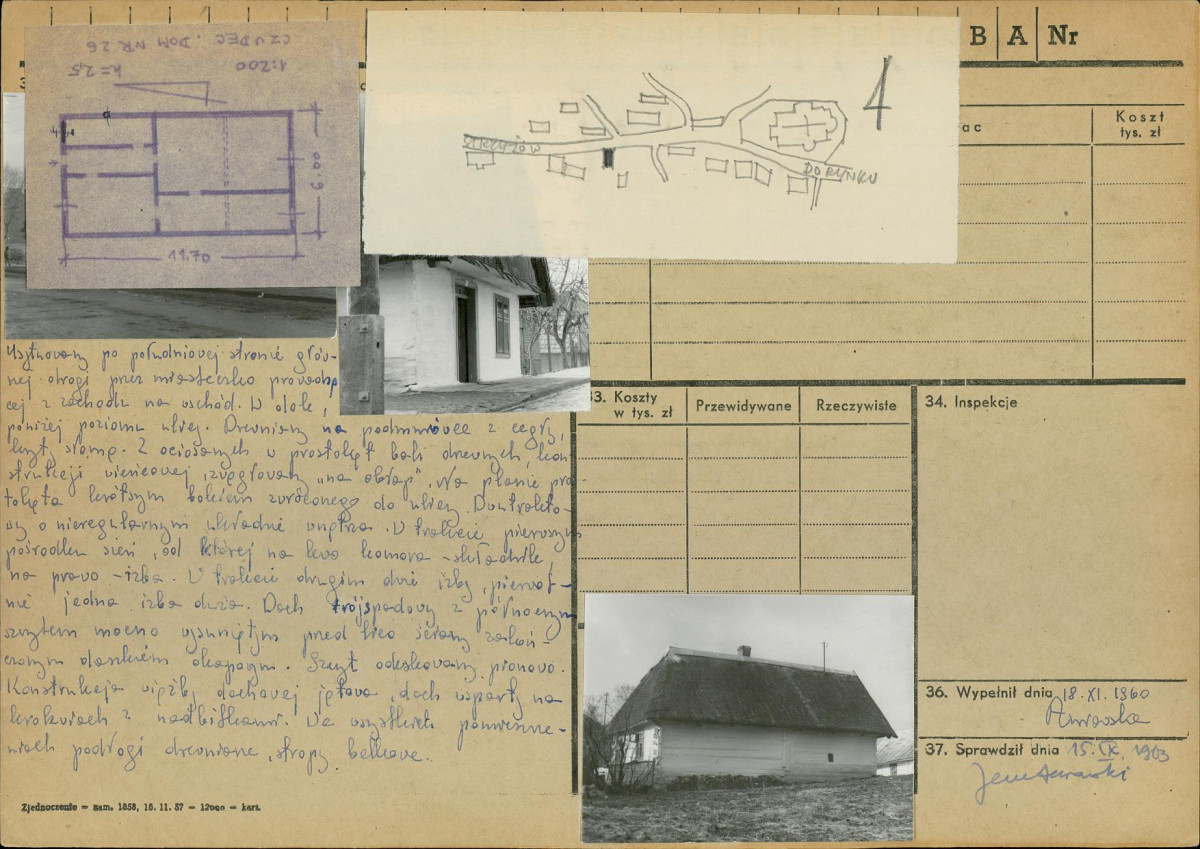 CZUDEC. DOM NR 26
1:200
h=2,5
9.00
11.70
STRZYŻÓW
DO RYNKU
1
B A Nr
ac
Koszt
tys. zł
Usytuowany po południowej stronie głów-
nej drogi przez miasteczko prowadzą
cej z zachodu na wschód. W dole,
poniżej poziomu ulicy. Drewniany na podmurówce z cegły,
kryty słomą. Z ociosanych w prostokąt bali drewnych, kon-
strukcji wieńcowej, węgłowany "na obłap". Na planie pro-
tokąta krótszym bokiem zwróconego do ulicy. Dwutrakto-
wy o nieregularnym układzie wnętrza. W trakcie pierwszym
pośrodku sień, od której na lewo komora - składzik,
na prawo - izba. W trakcie drugim dwie izby, pierwot-
nie jedna izba duża. Dach trójspadowy z północnym
szczytem mocno wysuniętym przed lico ściany zakoń-
czonym daszkiem okapowym. Szczyt odeskowany pionowo.
Konstrukcja więźby dachowej jętkowa, dach wsparty na
krokwiach z nadbitkami. We wszystkich pomieszcze-
niach podłogi drewniane, stropy belkowe.
33. Koszty
w tys. zł
Przewidywane
Rzeczywiste
34. Inspekcje
36. Wypełnił dnia 18. XI. 1960
37. Sprawdził dnia 15. IX. 1963
Zjednoczenie — zam. 1858, 18. 11. 57 — 12000 — kart.